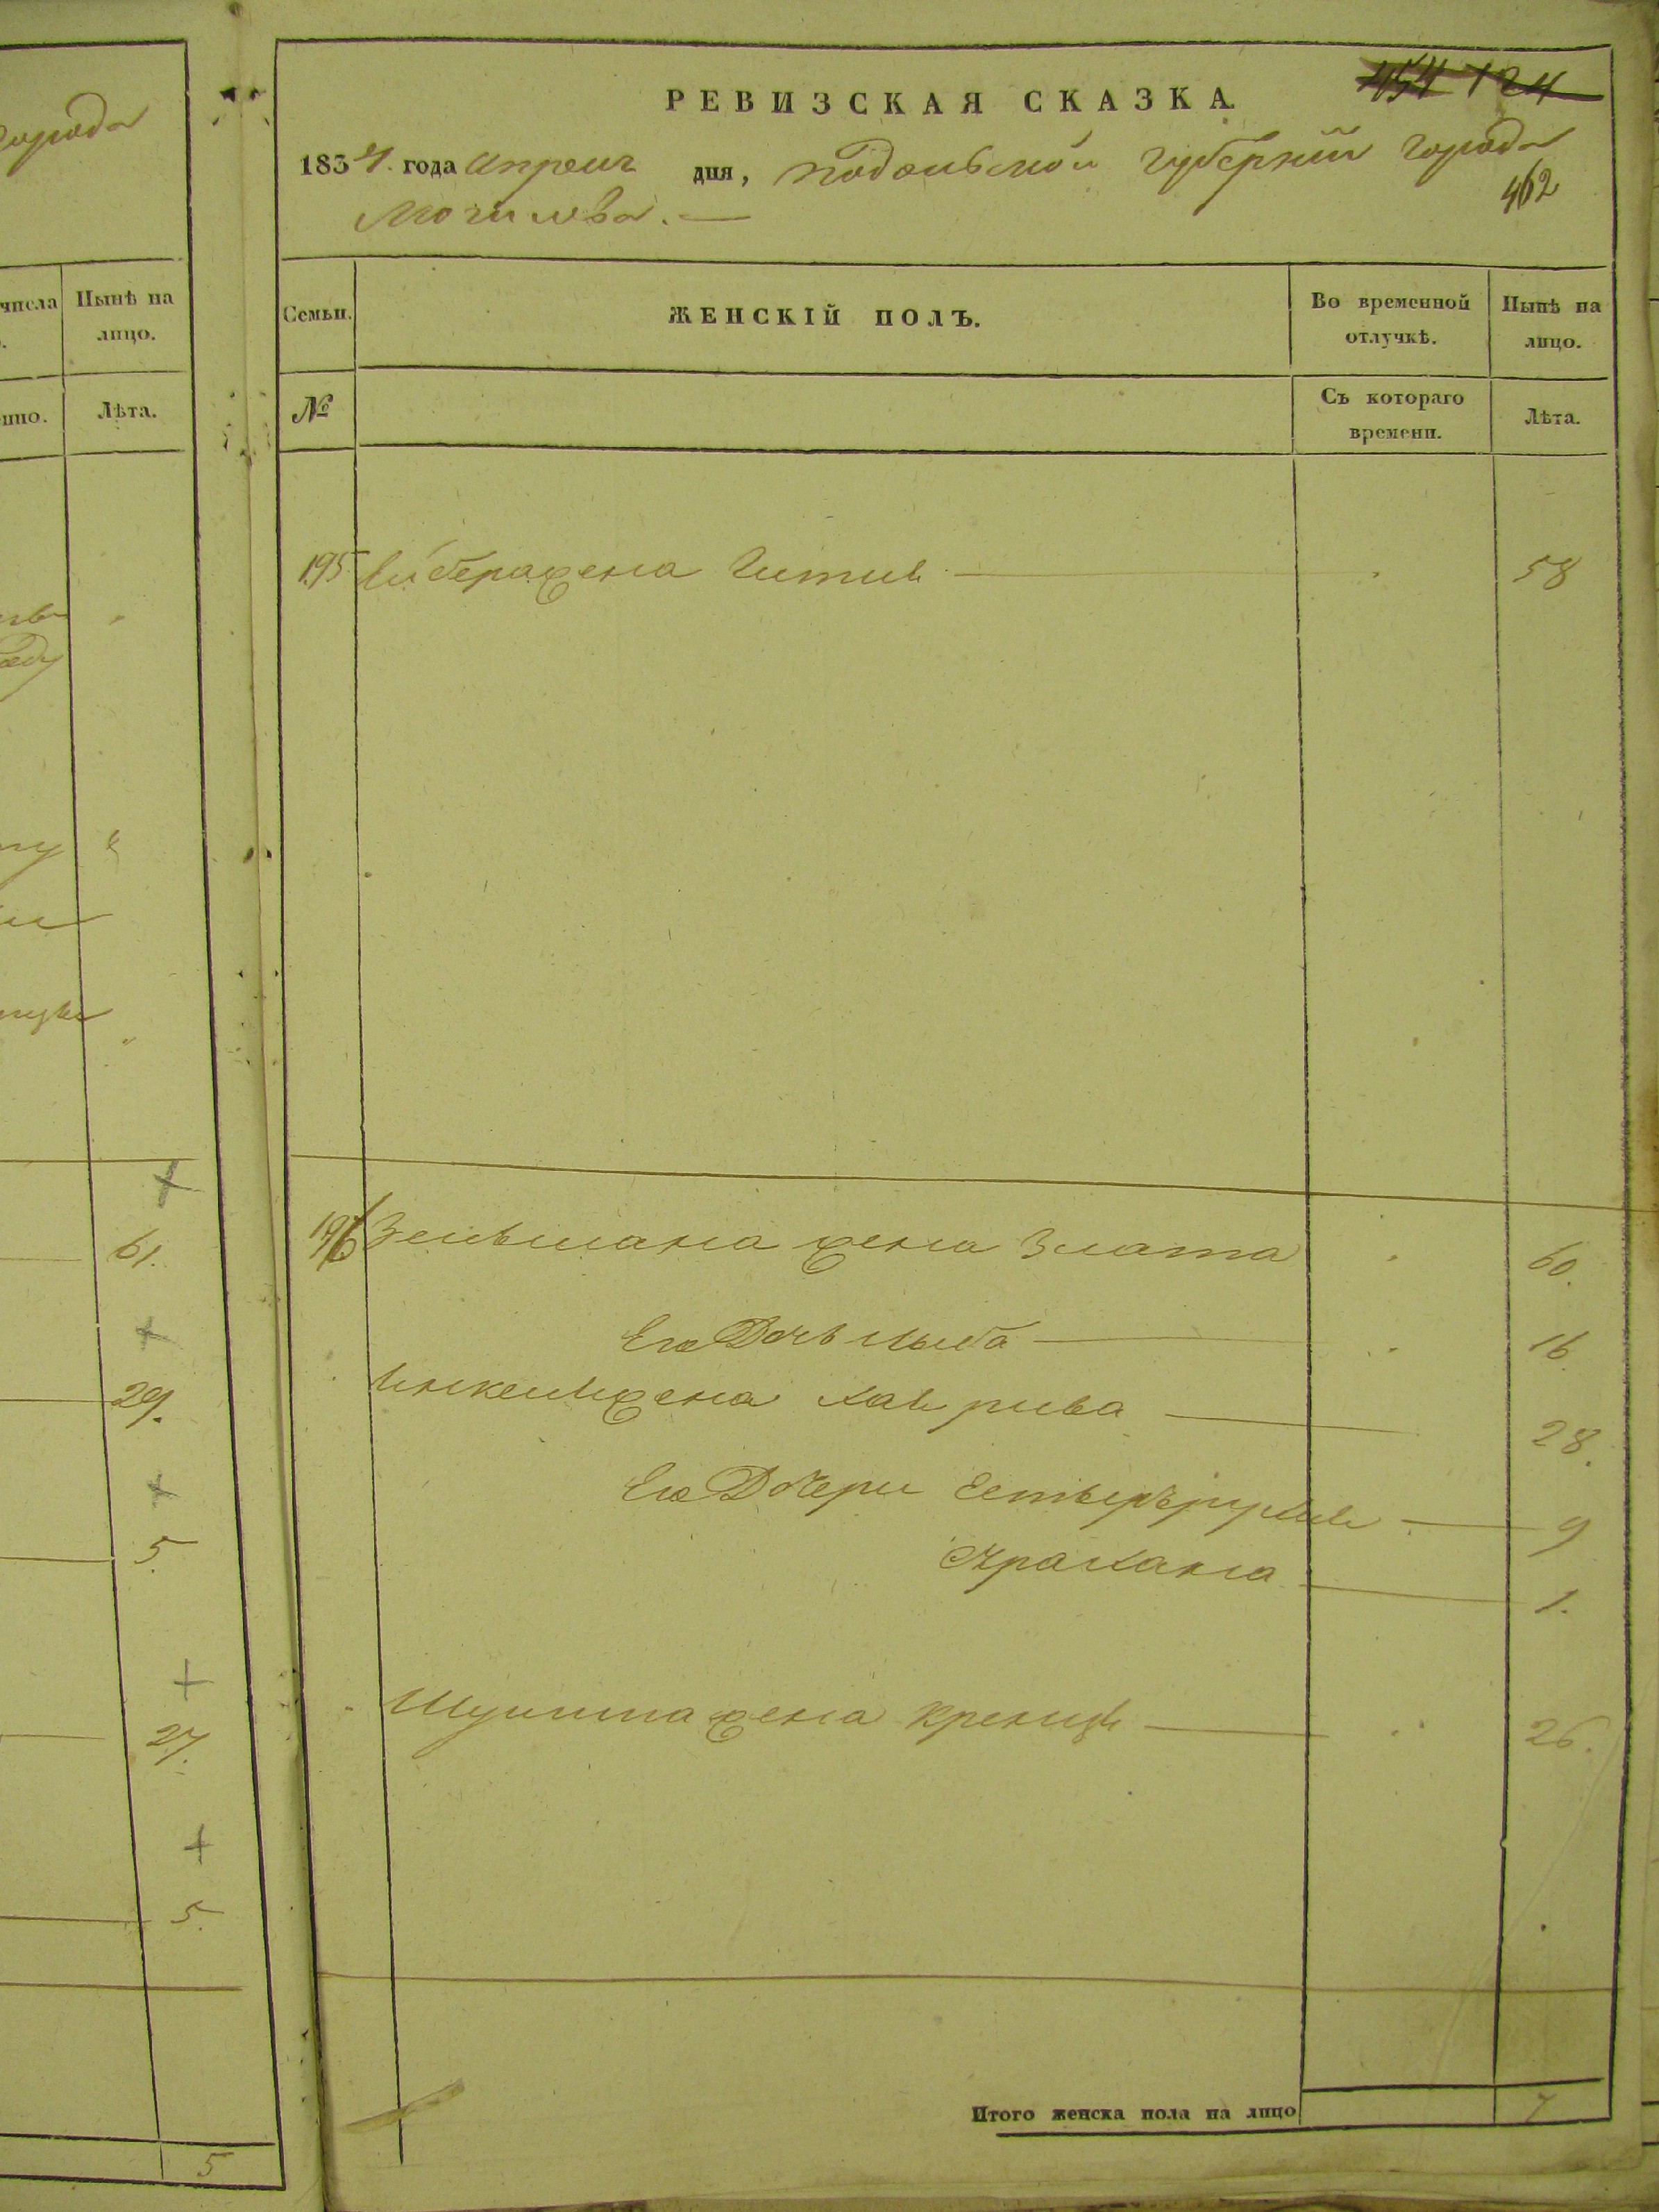 города
числа
Нынѣ на
лицо.
Лѣта.
61.
29.
5
27.
5.
5
454 124
РЕВИЗСКАЯ СКАЗКА
1834. года Апреля дня, Подольской губерніи города
462
Могилева.
Семьи.
ЖЕНСКІЙ ПОЛЪ.
Во временной
отлучкѣ.
Нынѣ на
лицо.
№
Съ котораго
времени.
Лѣта.
195 Лейбера жена Гитля 58
196 Зельмана жена Злата 60.
Его Дочь Лыба 16.
жена Хая рива 28.
Его Дочери Естырь рухля 9
1.
жена Креница 26.
Итого женска пола на лицо 7